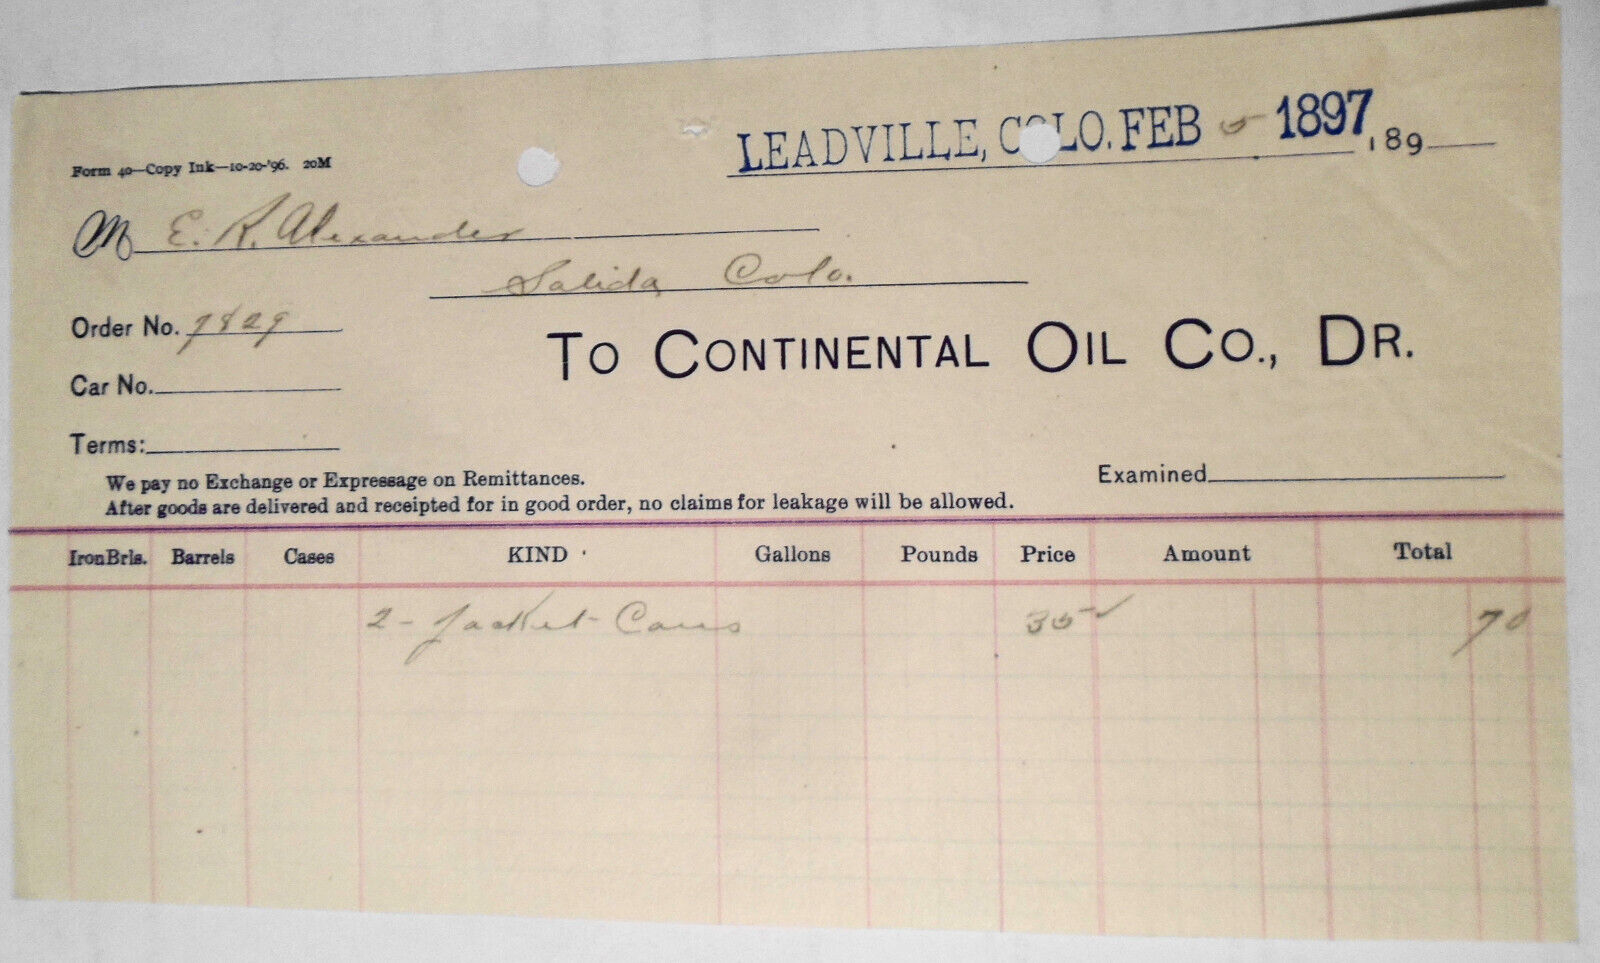 LEADVILLE, COLO. FEB 5 1897 , 189
Form 40—Copy Ink—10-20-'96. 20M
M E. R. Alexander
Salida Colo.
Order No. 7829
To Continental Oil Co., Dr.
Car No.
Terms:
We pay no Exchange or Expressage on Remittances.
Examined
After goods are delivered and receipted for in good order, no claims for leakage will be allowed.
Iron Brls. Barrels Cases KIND Gallons Pounds Price Amount Total
2 - Jacket Cans 35 ✓ 70